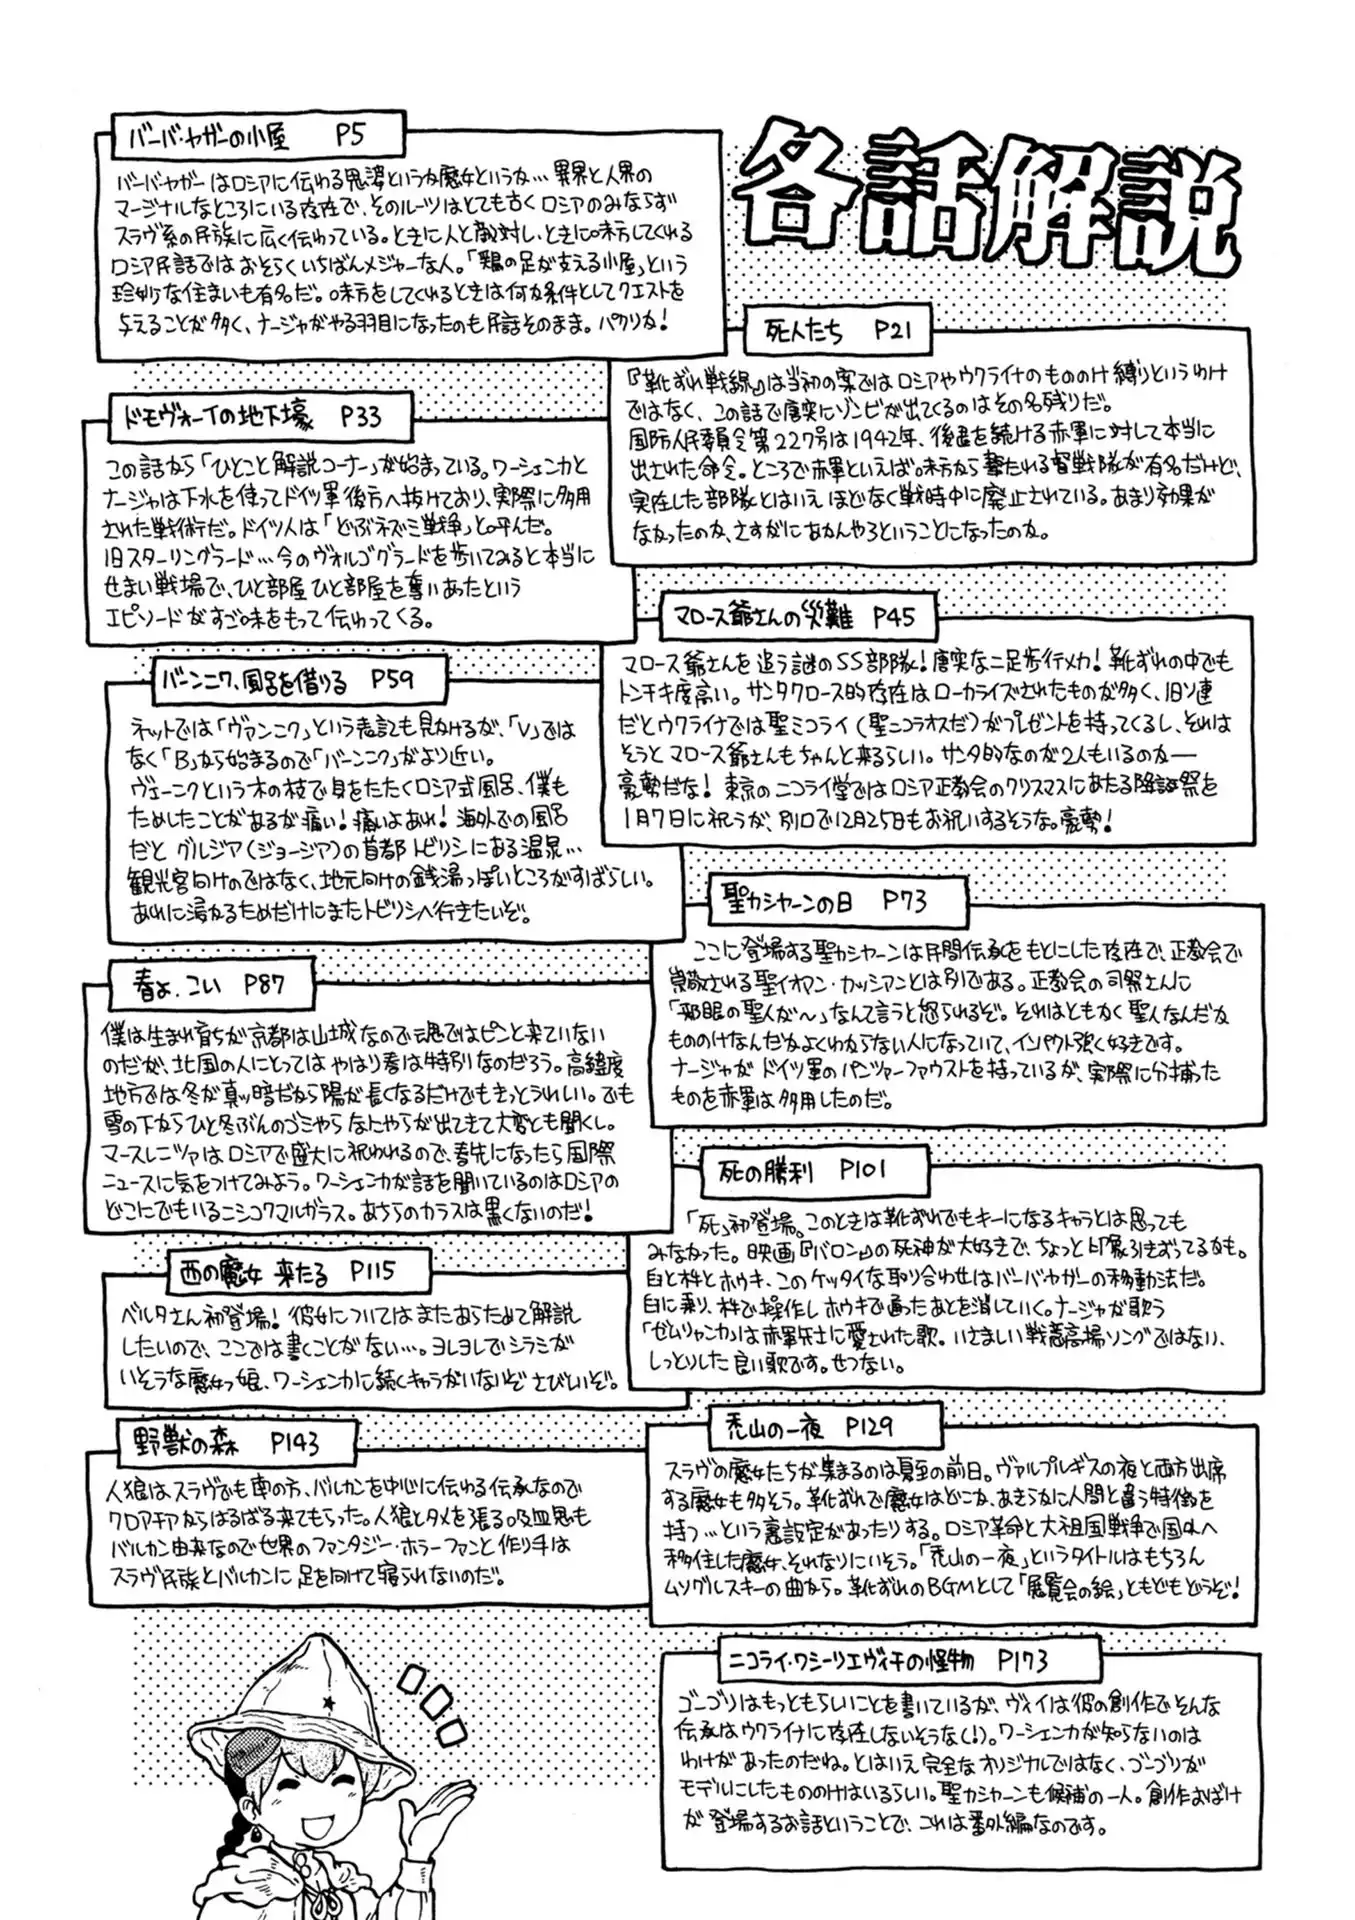 各話解説
バーバ・ヤガーの小屋 P5
バーバ・ヤガーはロシアに伝わる鬼婆というか魔女というか…異界と人界の
マージナルなところにいる存在で、そのルーツはとても古くロシアのみならず
スラヴ系の民族に広く伝わっている。ときに人と敵対し、ときに味方してくれる
ロシア民話ではおそらくいちばんメジャーな人。「鶏の足が支える小屋」という
珍妙な住まいも有名だ。味方をしてくれるときは何か条件としてクエストを
与えることが多く、ナージャがやる羽目になったのも民話そのまま。パクリか!
死人たち P21
『靴ずれ戦線』は当初の案ではロシアやウクライナのもののけ縛りというわけ
ではなく、この話で唐突にゾンビが出てくるのはその名残りだ。
国防人民委員令第227号は1942年、後退を続ける赤軍に対して本当に
出された命令。ところで赤軍といえば味方から撃たれる督戦隊が有名だけど、
実在した部隊とはいえほどなく戦時中に廃止されている。あまり効果が
なかったのか、さすがにあかんやろということになったのか。
ドモヴォーイの地下壕 P33
この話から「ひとこと解説コーナー」が始まっている。ワーシェンカと
ナージャは下水を使ってドイツ軍後方へ抜けており、実際に多用
された戦術だ。ドイツ人は「どぶネズミ戦争」と呼んだ。
旧スターリングラード…今のヴォルゴグラードを歩いてみると本当に
せまい戦場で、ひと部屋ひと部屋を奪いあったという
エピソードがすご味をもって伝わってくる。
マロース爺さんの災難 P45
マロース爺さんを追う謎のSS部隊!唐突な二足歩行メカ!靴ずれの中でも
トンチキ度高い。サンタクロース的存在はローカライズされたものが多く、旧ソ連
だとウクライナでは聖ミコライ(聖ニコラオスだ)がプレゼントを持ってくるし、それは
そうとマロース爺さんもちゃんと来るらしい。サンタ的なのが2人もいるのか――
豪勢だな!東京のニコライ堂ではロシア正教会のクリスマスにあたる降誕祭を
1月7日に祝うが、別口で12月25日もお祝いするそうな。豪勢!
バーンニク、風呂を借りる P59
ネットでは「ヴァンニク」という表記も見かけるが、「V」では
なく「B」から始まるので「バーンニク」がより近い。
ヴェーニクという木の枝で身をたたくロシア式風呂、僕も
ためしたことがあるが痛い!痛いよあれ!海外での風呂
だとグルジア(ジョージア)の首都トビリシにある温泉…
観光客向けのではなく、地元向けの銭湯っぽいところがすばらしい。
あれに浸かるためだけにまたトビリシへ行きたいぞ。
聖カシヤーンの日 P73
ここに登場する聖カシヤーンは民間伝承をもとにした存在で、正教会で
崇敬される聖イオアン・カッシアンとは別である。正教会の司祭さんに
「邪眼の聖人が〜」なんて言うと怒られるぞ。それはともかく聖人なんだか
もののけなんだかよくわからない人になっていて、インパクト強く好きです。
ナージャがドイツ軍のパンツァーファウストを持っているが、実際に分捕った
ものを赤軍は多用したのだ。
春よ、こい P87
僕は生まれ育ちが京都は山城なので魂ではピンと来ていない
のだが、北国の人にとってはやはり春は特別なのだろう。高緯度
地方では冬が真ッ暗だから陽が長くなるだけでもきっとうれしい。でも
雪の下からひと冬ぶんのゴミやらなにやらが出てきて大変とも聞くし。
マースレニツァはロシアで盛大に祝われるので、春先になったら国際
ニュースに気をつけてみよう。ワーシェンカが話を聞いているのはロシアの
どこにでもいるニシコクマルガラス。あちらのカラスは黒くないのだ!
死の勝利 P101
「死」初登場。このときは靴ずれでもキーになるキャラとは思っても
みなかった。映画『バロン』の死神が大好きで、ちょっと印象引きずってるかも。
臼と杵とホウキ、このケッタイな取り合わせはバーバ・ヤガーの移動法だ。
臼に乗り、杵で操作しホウキで通ったあとを消していく。ナージャが歌う
「ゼムリャンカ」は赤軍兵士に愛された歌。いさましい戦意高揚ソングではない、
しっとりした良い歌です。せつない。
西の魔女 来たる P115
ベルタさん初登場!彼女についてはまたあらためて解説
したいので、ここでは書くことがない…。ヨレヨレでシラミが
いそうな魔女っ娘、ワーシェンカに続くキャラがいないぞさびしいぞ。
禿山の一夜 P129
スラヴの魔女たちが集まるのは夏至の前日。ヴァルプルギスの夜と両方出席
する魔女も多そう。靴ずれで魔女はどこか、あきらかに人間と違う特徴を
持つ…という裏設定があったりする。ロシア革命と大祖国戦争で国外へ
移住した魔女、それなりにいそう。「禿山の一夜」というタイトルはもちろん
ムソグルスキーの曲から。靴ずれのBGMとして「展覧会の絵」ともどもどうぞ!
野獣の森 P143
人狼はスラヴでも南の方、バルカンを中心に伝わる伝承なので
クロアチアからはるばる来てもらった。人狼とタメを張る吸血鬼も
バルカン由来なので世界のファンタジー・ホラーファンと作り手は
スラヴ民族とバルカンに足を向けて寝られないのだ。
ニコライ・ワシーリエヴィチの怪物 P173
ゴーゴリはもっともらしいことを書いているが、ヴィイは彼の創作でそんな
伝承はウクライナに存在しないそうな(!)。ワーシェンカが知らないのは
わけがあったのだね。とはいえ完全なオリジナルではなく、ゴーゴリが
モデルにしたもののけはいるらしい。聖カシヤーンも候補の一人。創作おばけ
が登場するお話ということで、これは番外編なのです。